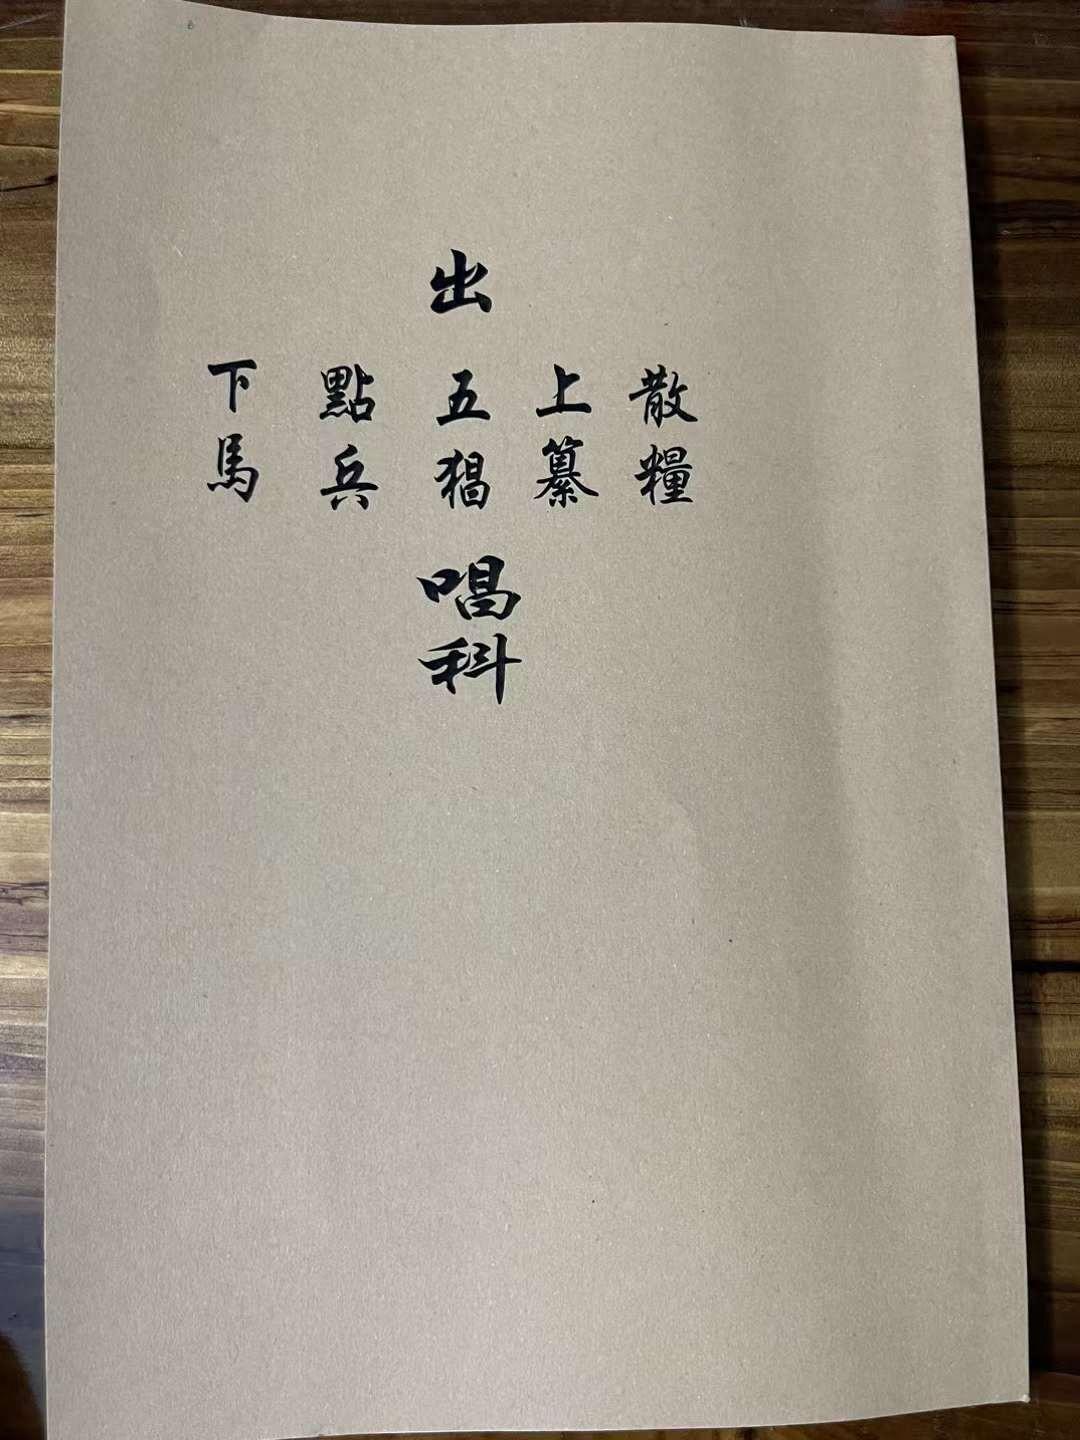 出
散糧
上纂
五猖
點兵
下馬
唱科